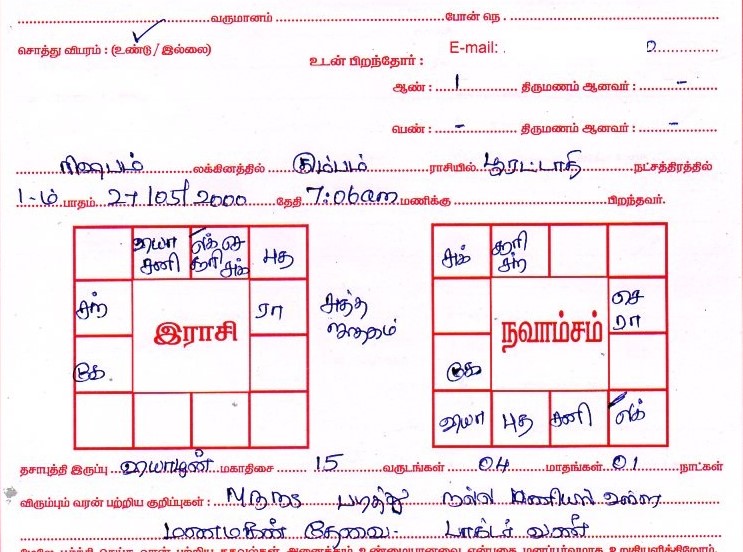 வருமானம் போன் நெ.
சொத்து விபரம் : (உண்டு / இல்லை) உடன் பிறந்தோர் : E-mail:
ஆண் : 1 திருமணம் ஆனவர் : -
பெண் : - திருமணம் ஆனவர் : -
ரிஷபம் லக்கினத்தில் கும்பம் ராசியில் பூரட்டாதி நட்சத்திரத்தில்
1-ம் பாதம் 27/05/2000 தேதி 7:06am மணிக்கு பிறந்தவர்.
வியா சனி
ல சூரி செ சுக்
புத
சந்
ரா
கே
இராசி
சுக்
சூரி சந்
செ ரா
கே
வியா
புத
சனி
ல
நவாம்சம்
தசாபுத்தி இருப்பு வியாழன் மகாதிசை 15 வருடங்கள் 04 மாதங்கள் 01 நாட்கள்
விரும்பும் வரன் பற்றிய குறிப்புகள் : படித்து நல்ல பணியில் உள்ள
மணமகன் தேவை-